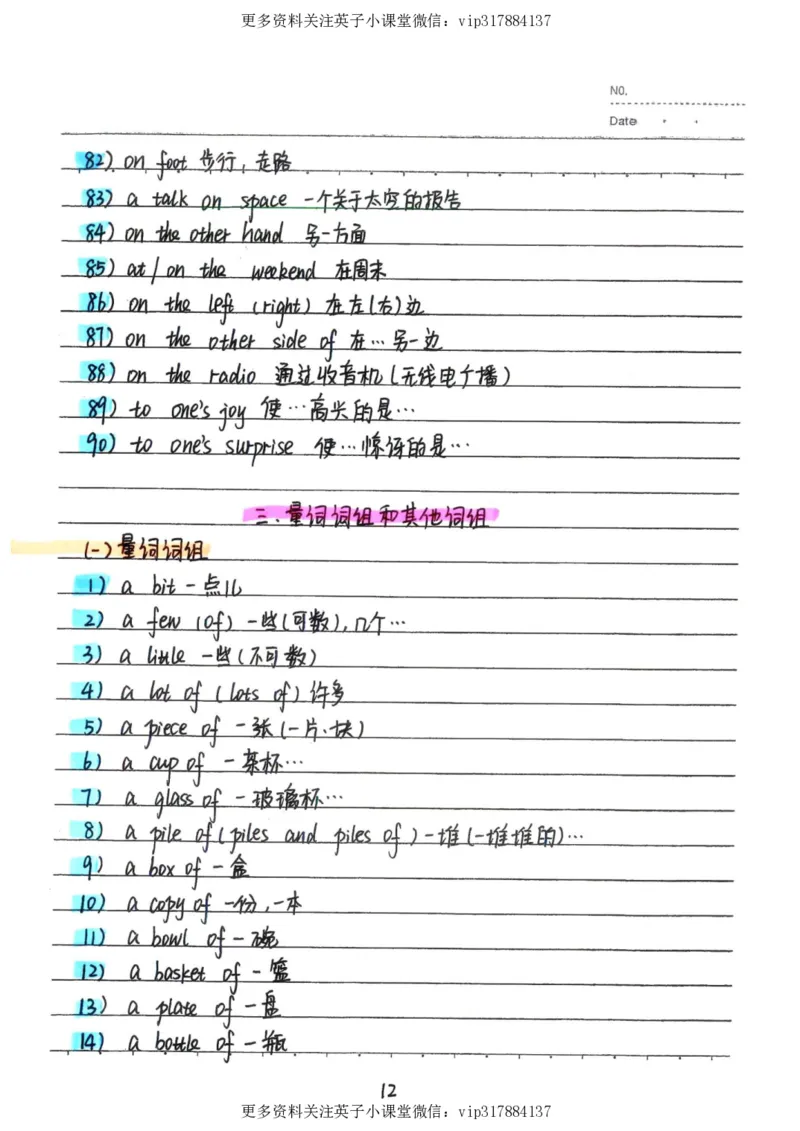 更多资料关注英子小课堂微信：vip317884137
NO.
Date
82) on foot 步行，走路
83) a talk on space 一个关于太空的报告
84) on the other hand 另一方面
85) at / on the weekend 在周末
86) on the left (right) 在左(右)边
87) on the other side of 在…另一边
88) on the radio 通过收音机(无线电广播)
89) to one's joy 使…高兴的是…
90) to one's surprise 使…惊讶的是…
三、量词词组和其他词组
(一)量词词组
1) a bit 一点儿
2) a few (of) 一些(可数),几个…
3) a little 一些(不可数)
4) a lot of (lots of) 许多
5) a piece of 一张(一片、块)
6) a cup of 一茶杯…
7) a glass of 一玻璃杯…
8) a pile of (piles and piles of) 一堆(一堆堆的)…
9) a box of 一盒
10) a copy of 一份,一本
11) a bowl of 一碗
12) a basket of 一篮
13) a plate of 一盘
14) a bottle of 一瓶
12
更多资料关注英子小课堂微信：vip317884137